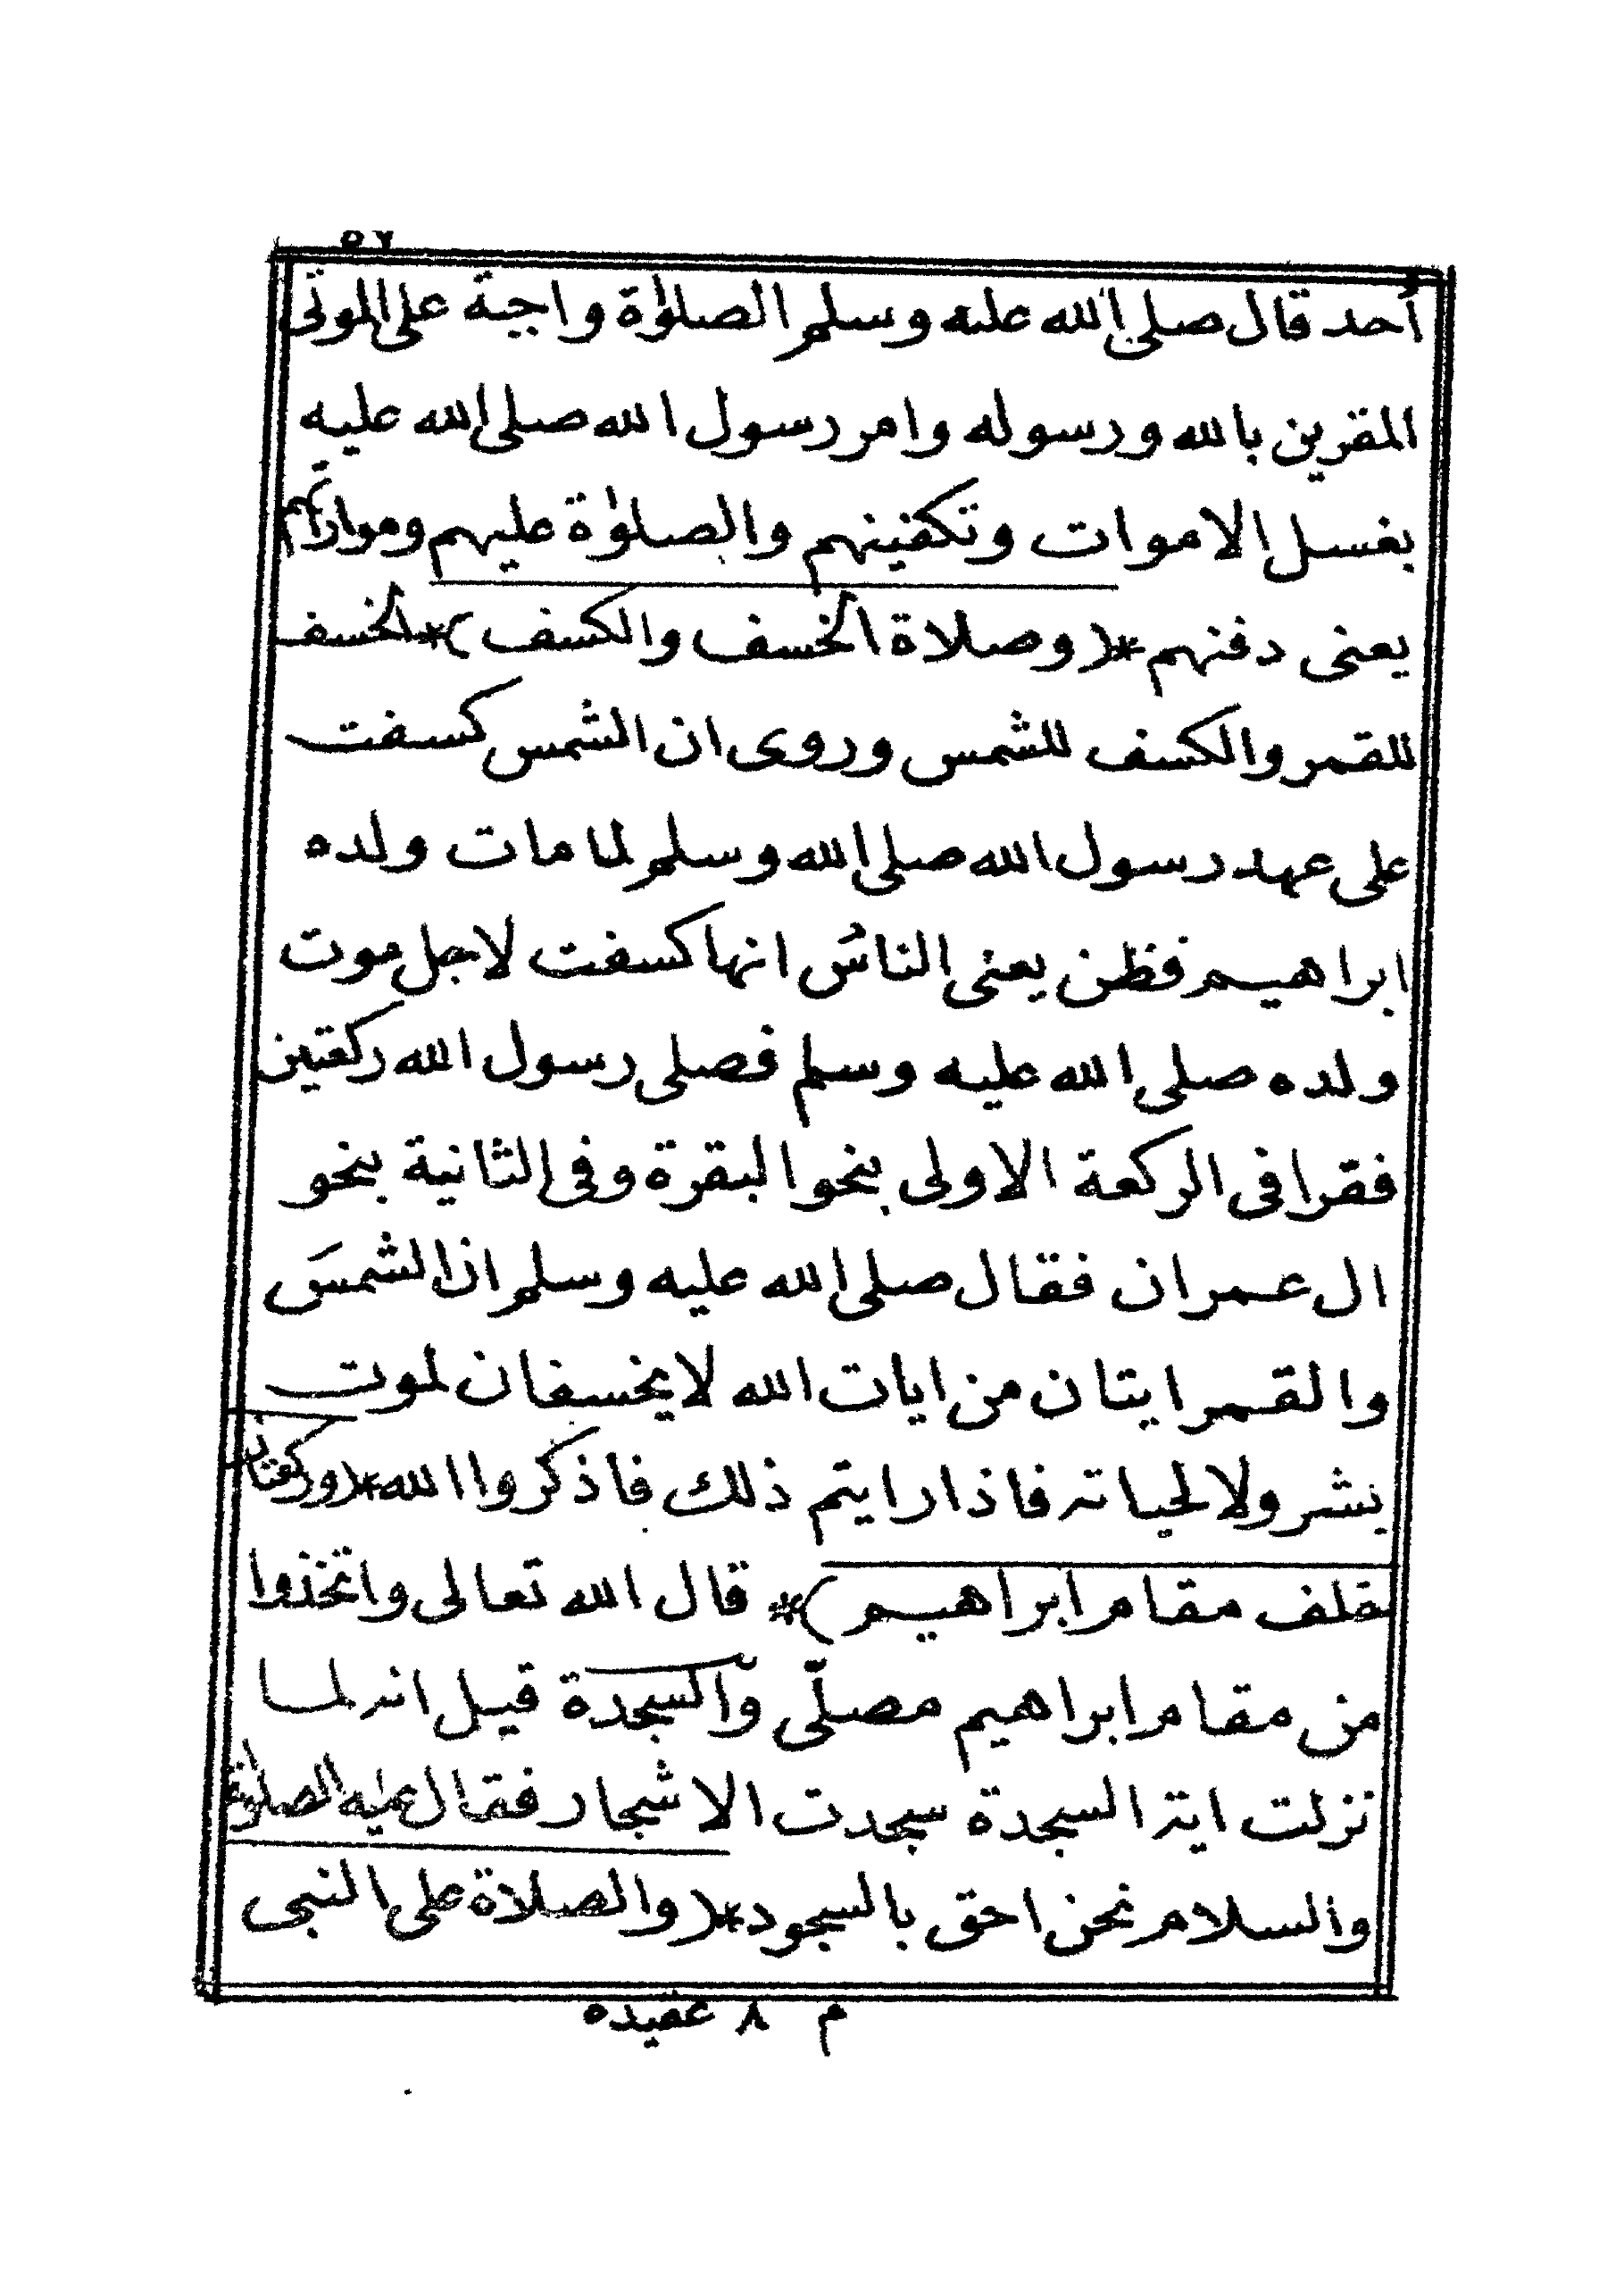 ٥٧
أحد قال صلى الله عليه وسلم الصلوٰة واجبة على الموتى
المقرين بالله ورسوله وامر رسول الله صلى الله عليه
بغسل الاموات وتكفينهم والصلوٰة عليهم وموارأتهم
يعنى دفنهم *(وصلاة الخسف والكسف)* الخسف
للقمر والكسف للشمس وروى ان الشمس كسفت
على عهد رسول الله صلى الله وسلم لما مات ولده
ابراهيم فظن يعنى الناسُ انها كسفت لاجل موت
ولده صلى الله عليه وسلم فصلى رسول الله ركعتين
فقرا فى الركعة الاولى بنحو البقرة وفى الثانية بنحو
ال عمران فقال صلى الله عليه وسلم ان الشمسَ
والقمر ايتان من ايات الله لا يخسفان لموت
بشر ولا لحياته فاذا رايتم ذلك فاذكروا الله *(وركعتان
خلف مقام ابراهيم)* قال الله تعالى واتخذوا
من مقام ابراهيم مصلّى والسجدة قيل انه لما
نزلت اية السجدة سجدت الاشجار فقال عليه الصلوٰة
والسلام نحن احق بالسجود *(والصلاة على النبى
م ٨ عقيده